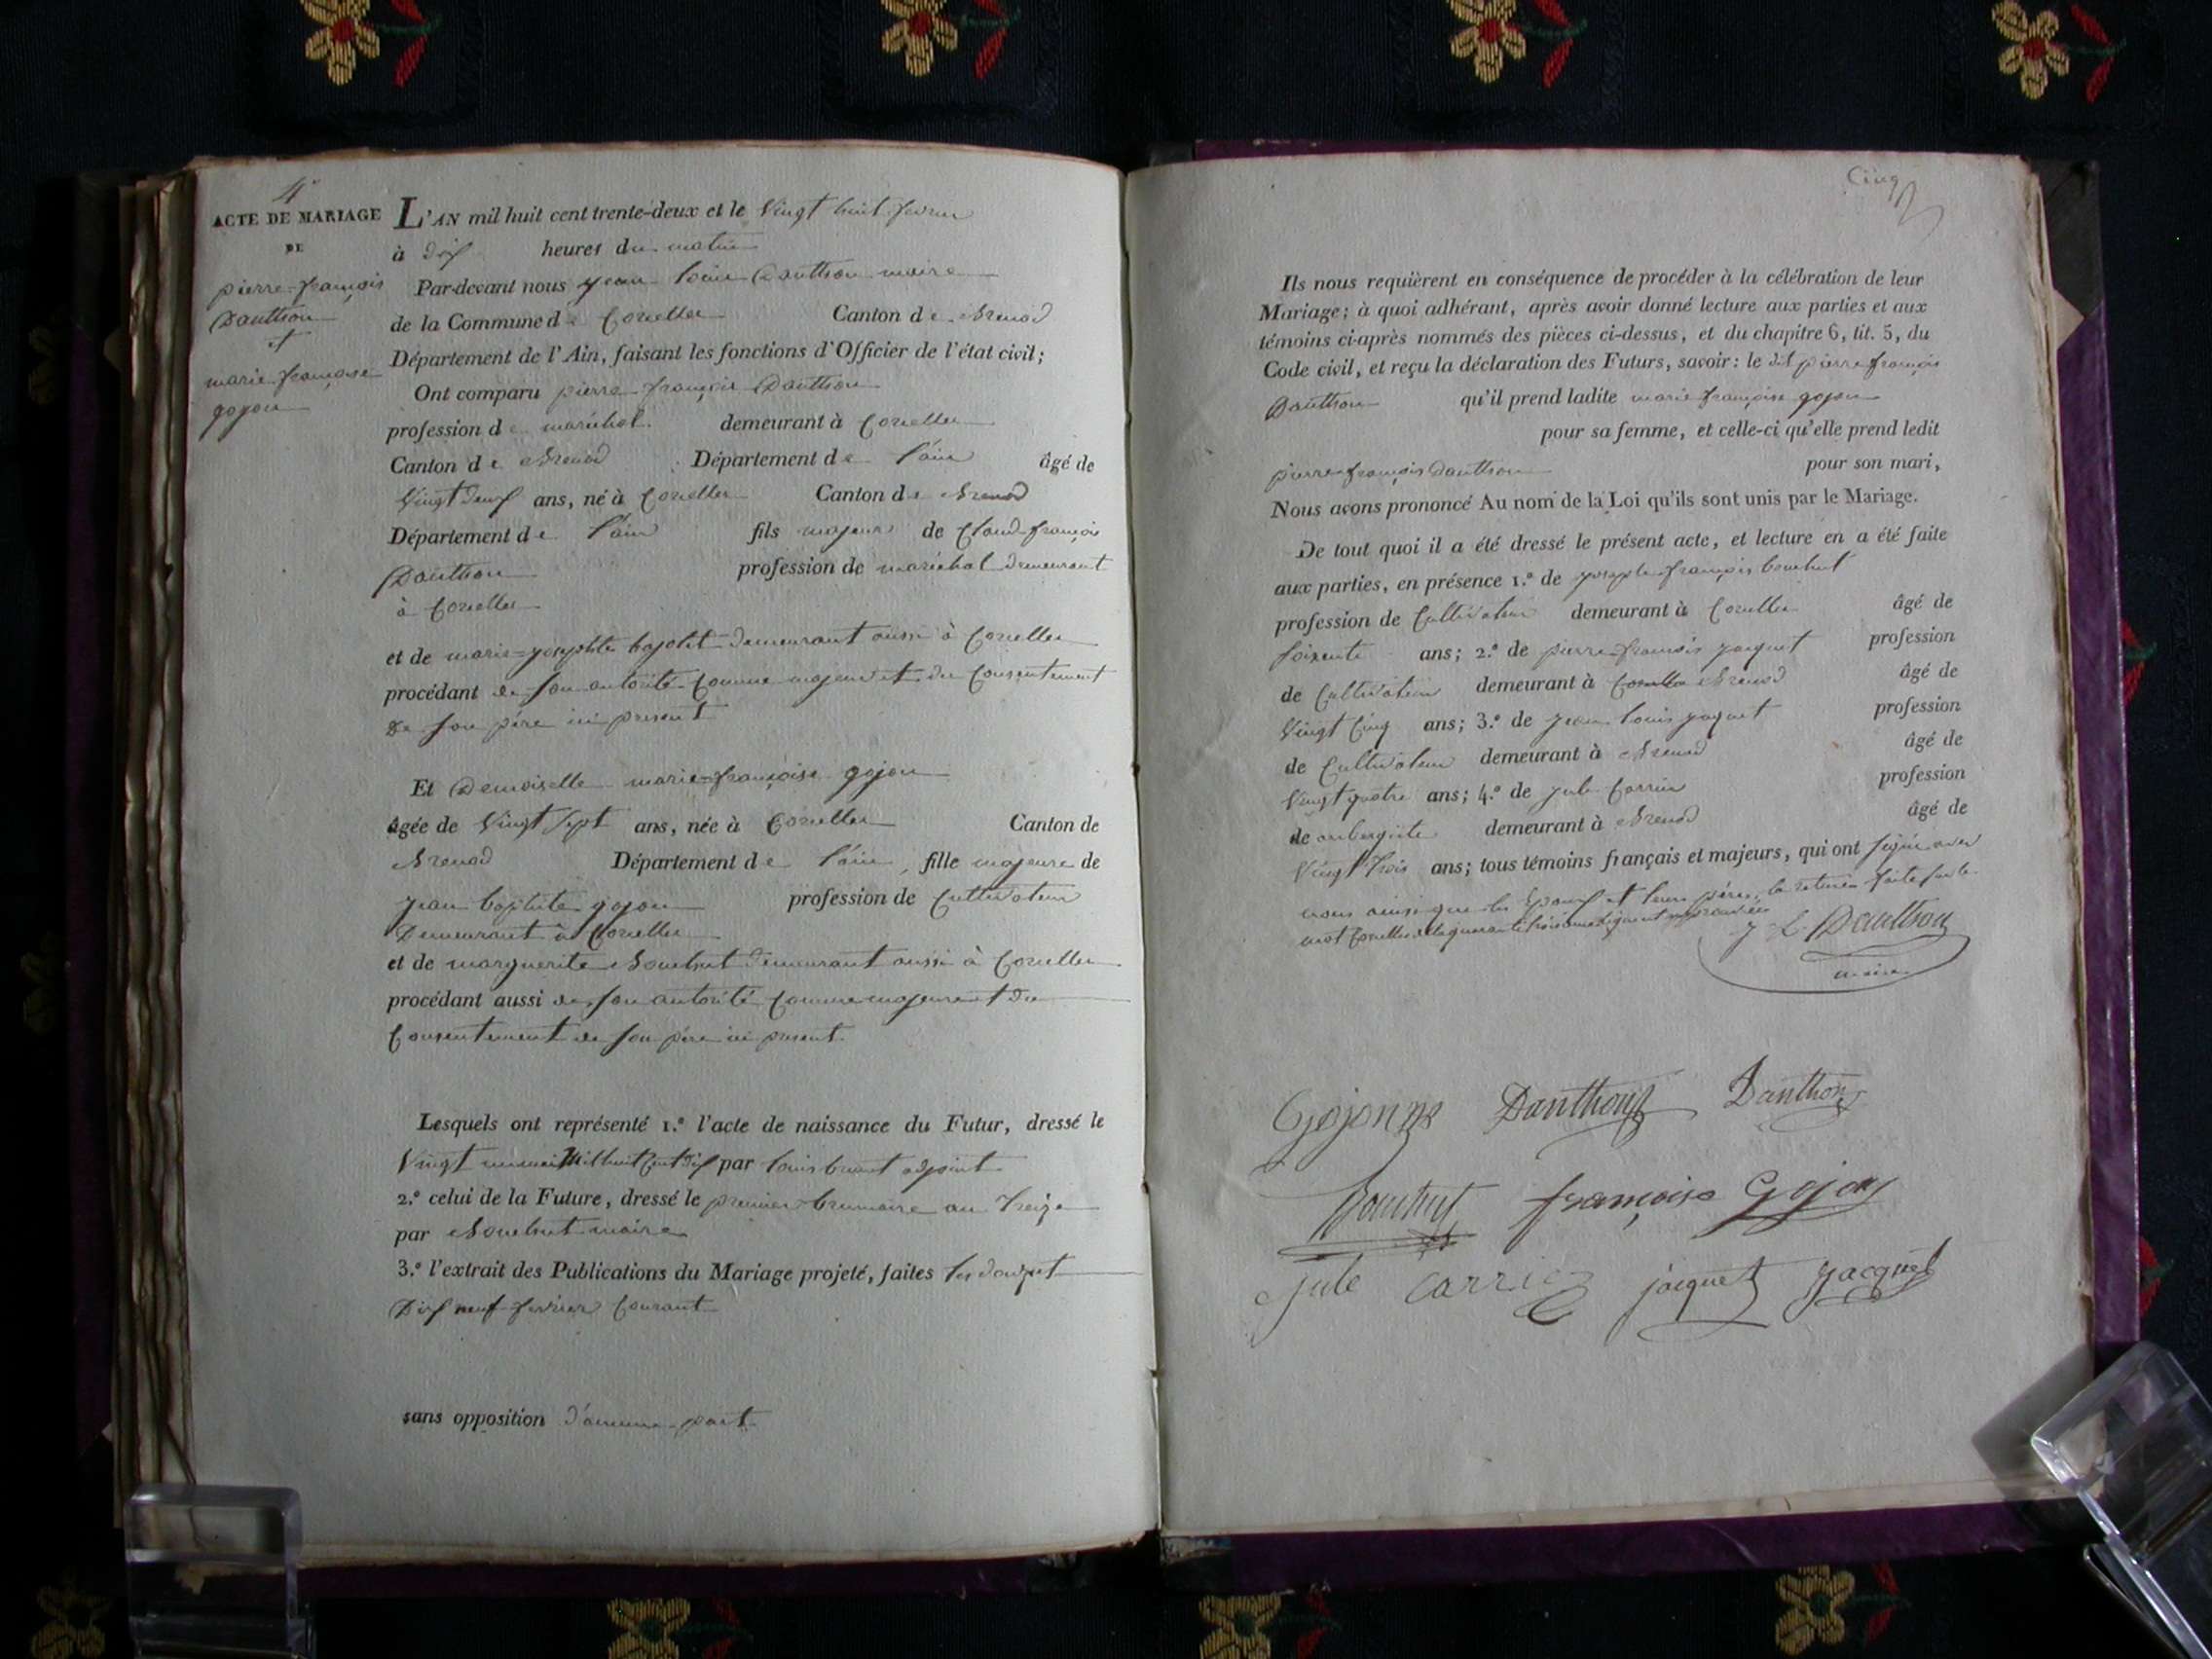 4e
ACTE DE MARIAGE
DE
pierre-françois
Danthon
et
marie françoise
gojon
L'AN mil huit cent trente-deux et le Vingt huit fevrier
à dix heures du matin
Par-devant nous jean louis Danthon maire
de la Commune de Corcelles Canton de Brenod
Département de l'Ain, faisant les fonctions d'Officier de l'état civil;
Ont comparu pierre françois Danthon
profession de maréchal demeurant à Corcelles
Canton de Brenod Département de l'ain âgé de
Vingt deux ans, né à Corcelles Canton de Brenod
Département de l'ain fils majeur de Claude françois
Danthon profession de maréchal demeurant
à Corcelles
et de marie=josephte bajolet demeurant aussi à Corcelles
procédant de son autorité Comme majeur et du Consentement
de son père ici present
Et Demoiselle marie=françoise gojon
âgée de Vingt sept ans, née à Corcelles Canton de
Brenod Département de l'ain, fille majeure de
jean baptiste gojon profession de Cultivateur
Demeurant à Corcelles
et de marguerite Bouchut demeurant aussi à Corcelles
procédant aussi de son autorité Comme majeure et du
Consentement de son père ici present
Lesquels ont représenté 1.° l'acte de naissance du Futur, dressé le
Vingt un mai Mil huit Cent dix par louis brunet adjoint
2.° celui de la Future, dressé le premier brumaire an treize
par Bouchut maire
3.° l'extrait des Publications du Mariage projeté, faites les douze et
Dix neuf fevrier Courant
sans opposition d'aucune part
Cinq
Ils nous requièrent en conséquence de procéder à la célébration de leur
Mariage; à quoi adhérant, après avoir donné lecture aux parties et aux
témoins ci-après nommés des pièces ci-dessus, et du chapitre 6, tit. 5, du
Code civil, et reçu la déclaration des Futurs, savoir: le dit pierre françois
Danthon qu'il prend ladite marie françoise gojon
pour sa femme, et celle-ci qu'elle prend ledit
pierre françois Danthon pour son mari,
Nous avons prononcé Au nom de la Loi qu'ils sont unis par le Mariage.
De tout quoi il a été dressé le présent acte, et lecture en a été faite
aux parties, en présence 1.° de joseph françois bouchut
profession de Cultivateur demeurant à Corcelles âgé de
soixente ans; 2.° de pierre françois jacquet profession
de Cultivateur demeurant à Corcelles Brenod âgé de
Vingt Cinq ans; 3.° de jean louis jaquet profession
de Cultivateur demeurant à Brenod âgé de
Vingt quatre ans; 4.° de jule Carrier profession
de aubergiste demeurant à Brenod âgé de
Vingt trois ans; tous témoins français et majeurs, qui ont signé avec
nous ainsi que les Epoux et leurs pères, la rature faite sur le
mot Corcelles de la quarante troisième ligne est approuvée
J L Danthon
maire
Gojonne Danthon Danthon
Bouchut françoise Gojon
jule Carrier jacquet Jacquet